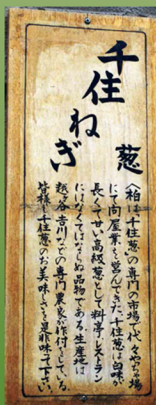 千住ねぎ
葱
〈柏は、千住葱の専門の市場で代々やっちゃ場
にて問屋業を営んできた、千住葱は白味が
長くて甘い高級葱として料亭・レストラン
にはなくてはならぬ品物である、生産地は
越ヶ谷・吉川などの専門農家が作付をしている
皆様も千住葱のお美味しさを是非味って下さい